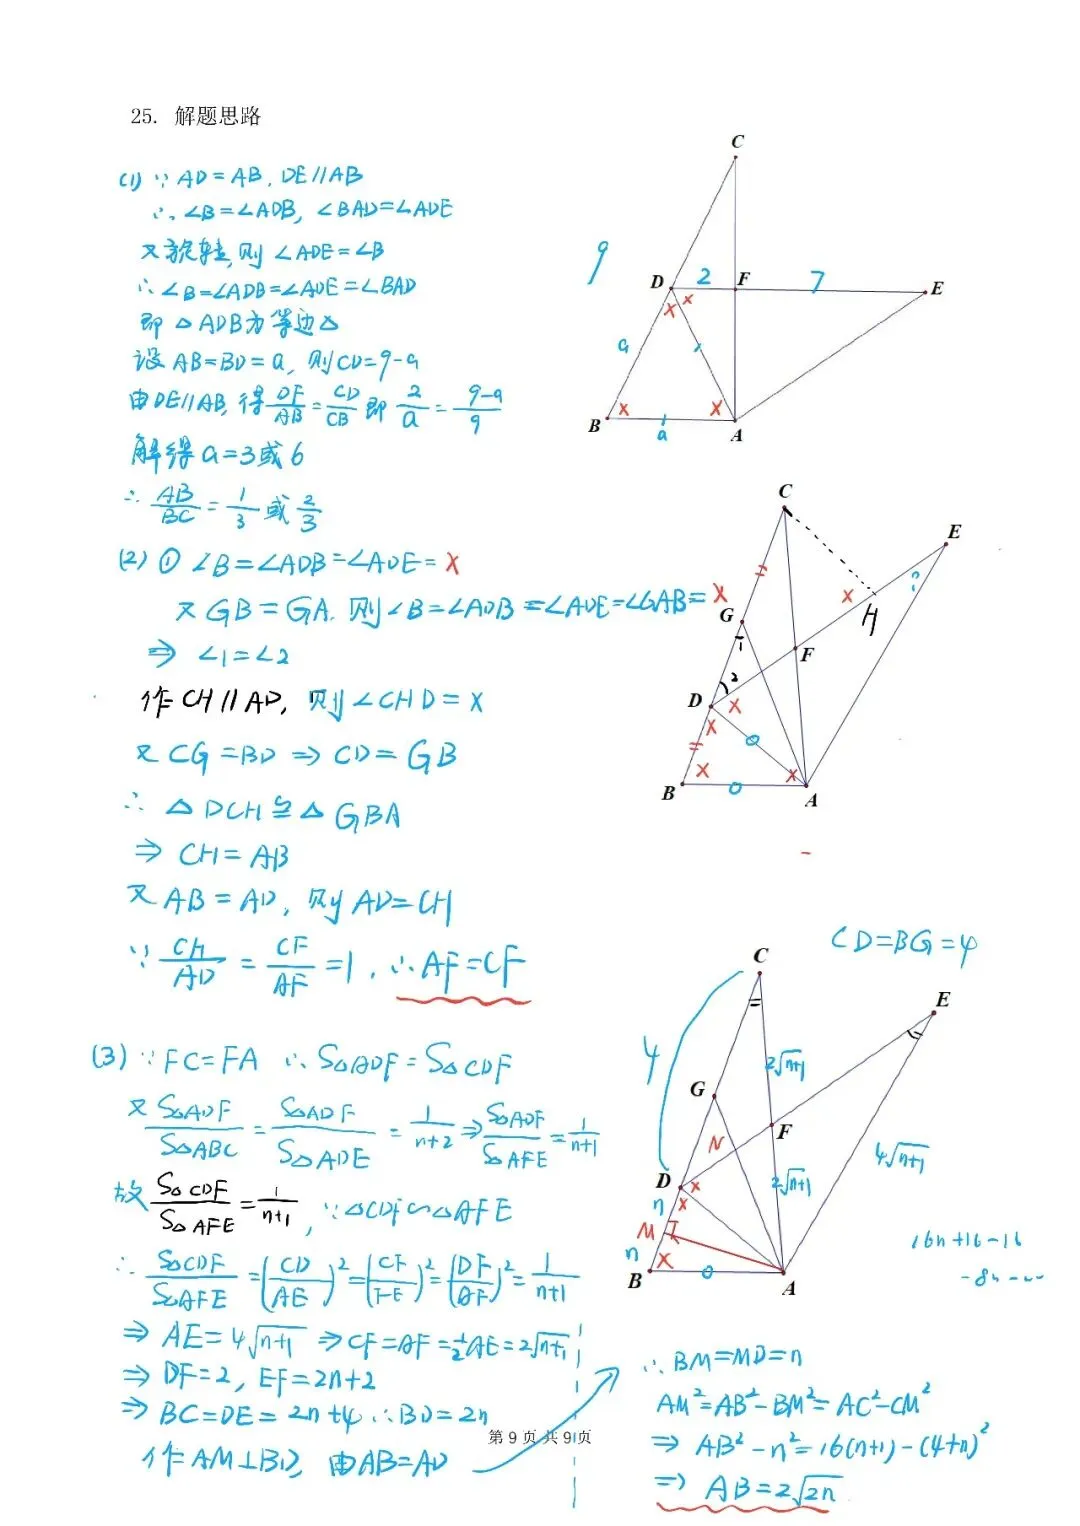 25. 解题思路
(1) ∵ AD=AB, DE//AB
∴ ∠B=∠ADB, ∠BAD=∠ADE
又旋转,则 ∠ADE=∠B
∴ ∠B=∠ADB=∠ADE=∠BAD
即 △ADB为等边△
设 AB=BD=a, 则CD=9-a
由DE//AB, 得 DF/AB = CD/CB 即 2/a = (9-a)/9
解得 a=3或6
∴ AB/BC = 1/3 或 2/3
C
9
D 2 F 7 E
× ×
a
B × a × A
(2) ① ∠B=∠ADB=∠ADE=×
又GB=GA, 则∠B=∠ADB=∠ADE=∠GAB=×
⇒ ∠1=∠2
作CH//AD, 则∠CHD=×
又CG=BD ⇒ CD=GB
∴ △DCH≌△GBA
⇒ CH=AB
又AB=AD, 则AD=CH
∵ CH/AD = CF/AF =1, ∴AF=CF
C
E
?
× H
G
1
F
2
D ×
×
B × × A
(3) ∵ FC=FA ∴ S△ADF=S△CDF
又 S△ADF/S△ABC = S△ADF/S△ADE = 1/(n+2) ⇒ S△ADF/S△AFE = 1/(n+1)
故 S△CDF/S△AFE = 1/(n+1), ∵△CDF∽△AFE
∴ S△CDF/S△AFE =(CD/AE)²=(CF/FE)²=(DF/AF)²= 1/(n+1)
⇒ AE=4√(n+1) ⇒CF=AF=½AE=2√(n+1)
⇒ DF=2, EF=2n+2
⇒ BC=DE=2n+4 ∴BD=2n
作AM⊥BD, 由AB=AD
CD=BG=4
C
E
4
2√(n+1)
G
F
N
4√(n+1)
D
2√(n+1)
n
M
n
B A
16n+16-16
∴ BM=MD=n
AM²=AB²-BM²=AC²-CM²
⇒ AB²-n²=16(n+1)-(4+n)²
⇒ AB=2√2n
第 9 页 共 9 页